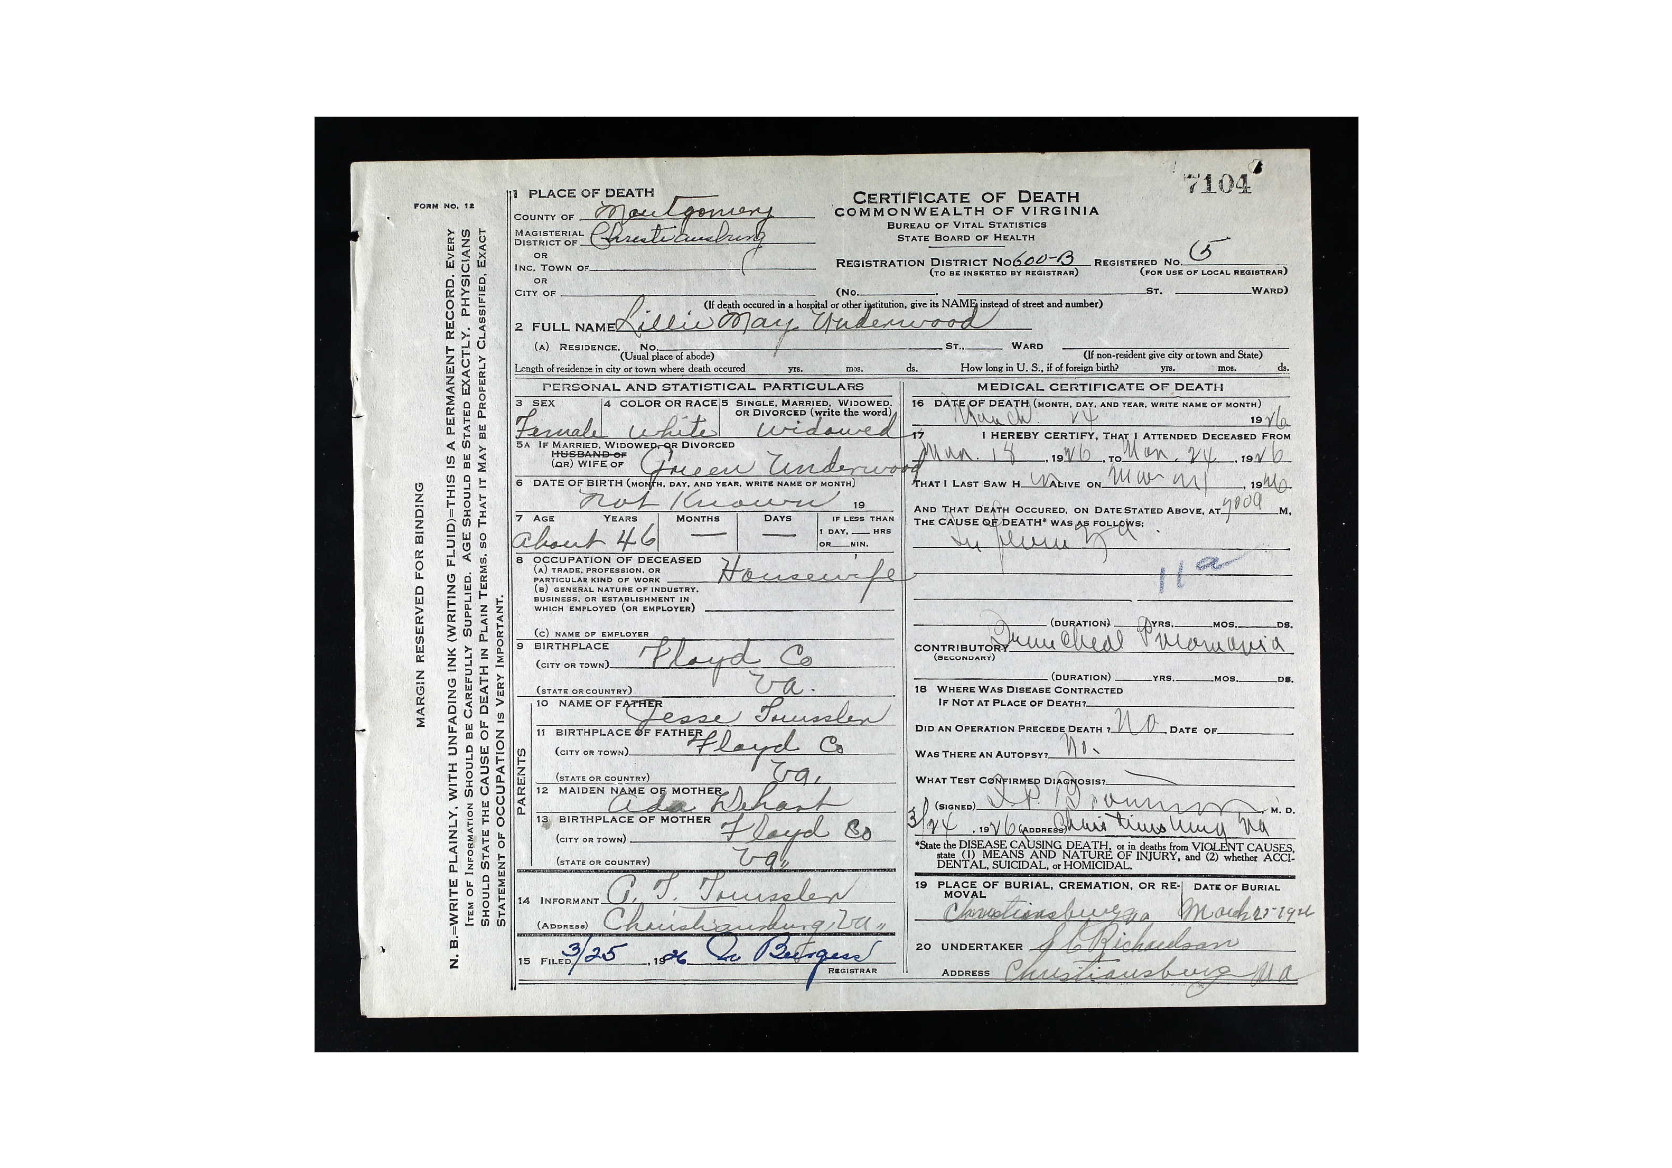 7104
FORM No. 12
MARGIN RESERVED FOR BINDING
N. B.=WRITE PLAINLY, WITH UNFADING INK (WRITING FLUID)=THIS IS A PERMANENT RECORD. EVERY
ITEM OF INFORMATION SHOULD BE CAREFULLY SUPPLIED. AGE SHOULD BE STATED EXACTLY. PHYSICIANS
SHOULD STATE THE CAUSE OF DEATH IN PLAIN TERMS, SO THAT IT MAY BE PROPERLY CLASSIFIED. EXACT
STATEMENT OF OCCUPATION IS VERY IMPORTANT.
1 PLACE OF DEATH
COUNTY OF Montgomery
MAGISTERIAL DISTRICT OF Christiansburg
OR
INC. TOWN OF
OR
CITY OF
CERTIFICATE OF DEATH
COMMONWEALTH OF VIRGINIA
BUREAU OF VITAL STATISTICS
STATE BOARD OF HEALTH
REGISTRATION DISTRICT No 600-B REGISTERED No. 5
(TO BE INSERTED BY REGISTRAR) (FOR USE OF LOCAL REGISTRAR)
(No. ST. WARD)
(If death occured in a hospital or other institution, give its NAME instead of street and number)
2 FULL NAME Lillie May Underwood
(A) RESIDENCE. No. ST., WARD
(Usual place of abode) (If non-resident give city or town and State)
Length of residence in city or town where death occured yrs. mos. ds. How long in U. S., if of foreign birth? yrs. mos. ds.
PERSONAL AND STATISTICAL PARTICULARS
3 SEX 4 COLOR OR RACE 5 SINGLE, MARRIED, WIDOWED, OR DIVORCED (write the word)
Female White Widowed
5A IF MARRIED, WIDOWED, OR DIVORCED
HUSBAND OF
(OR) WIFE OF Green Underwood
6 DATE OF BIRTH (MONTH, DAY, AND YEAR, WRITE NAME OF MONTH)
Not Known 19
7 AGE YEARS MONTHS DAYS IF LESS THAN
1 DAY, HRS
OR MIN.
About 46 — —
8 OCCUPATION OF DECEASED
(A) TRADE, PROFESSION, OR
PARTICULAR KIND OF WORK Housewife
(B) GENERAL NATURE OF INDUSTRY,
BUSINESS, OR ESTABLISHMENT IN
WHICH EMPLOYED (OR EMPLOYER)
(C) NAME OF EMPLOYER
9 BIRTHPLACE
(CITY OR TOWN) Floyd Co
(STATE OR COUNTRY) Va.
PARENTS
10 NAME OF FATHER Jesse
11 BIRTHPLACE OF FATHER
(CITY OR TOWN) Floyd Co
(STATE OR COUNTRY) Va.
12 MAIDEN NAME OF MOTHER Ada Dehart
13 BIRTHPLACE OF MOTHER
(CITY OR TOWN) Floyd Co
(STATE OR COUNTRY) Va.
14 INFORMANT
(ADDRESS) Christiansburg, Va.
15 FILED 3/25, 1926 Burgess
REGISTRAR
MEDICAL CERTIFICATE OF DEATH
16 DATE OF DEATH (MONTH, DAY, AND YEAR, WRITE NAME OF MONTH)
March 24 1926
17 I HEREBY CERTIFY, THAT I ATTENDED DECEASED FROM
Mar. 18, 1926, TO Mar. 24, 1926
THAT I LAST SAW H ALIVE ON 1926
AND THAT DEATH OCCURED, ON DATE STATED ABOVE, AT M,
THE CAUSE OF DEATH* WAS AS FOLLOWS:
Influenza
11 a
(DURATION) YRS. MOS. DS.
CONTRIBUTORY Bronchial Pneumonia
(SECONDARY)
(DURATION) YRS. MOS. DS.
18 WHERE WAS DISEASE CONTRACTED
IF NOT AT PLACE OF DEATH?
DID AN OPERATION PRECEDE DEATH? No DATE OF
WAS THERE AN AUTOPSY? No.
WHAT TEST CONFIRMED DIAGNOSIS?
(SIGNED) M. D.
3/24, 1926 (ADDRESS) Christiansburg Va
*State the DISEASE CAUSING DEATH, or in deaths from VIOLENT CAUSES,
state (1) MEANS AND NATURE OF INJURY, and (2) whether ACCI-
DENTAL, SUICIDAL, or HOMICIDAL.
19 PLACE OF BURIAL, CREMATION, OR RE- DATE OF BURIAL
MOVAL
Christiansburg Va March 25-1926
20 UNDERTAKER Richardson
ADDRESS Christiansburg Va